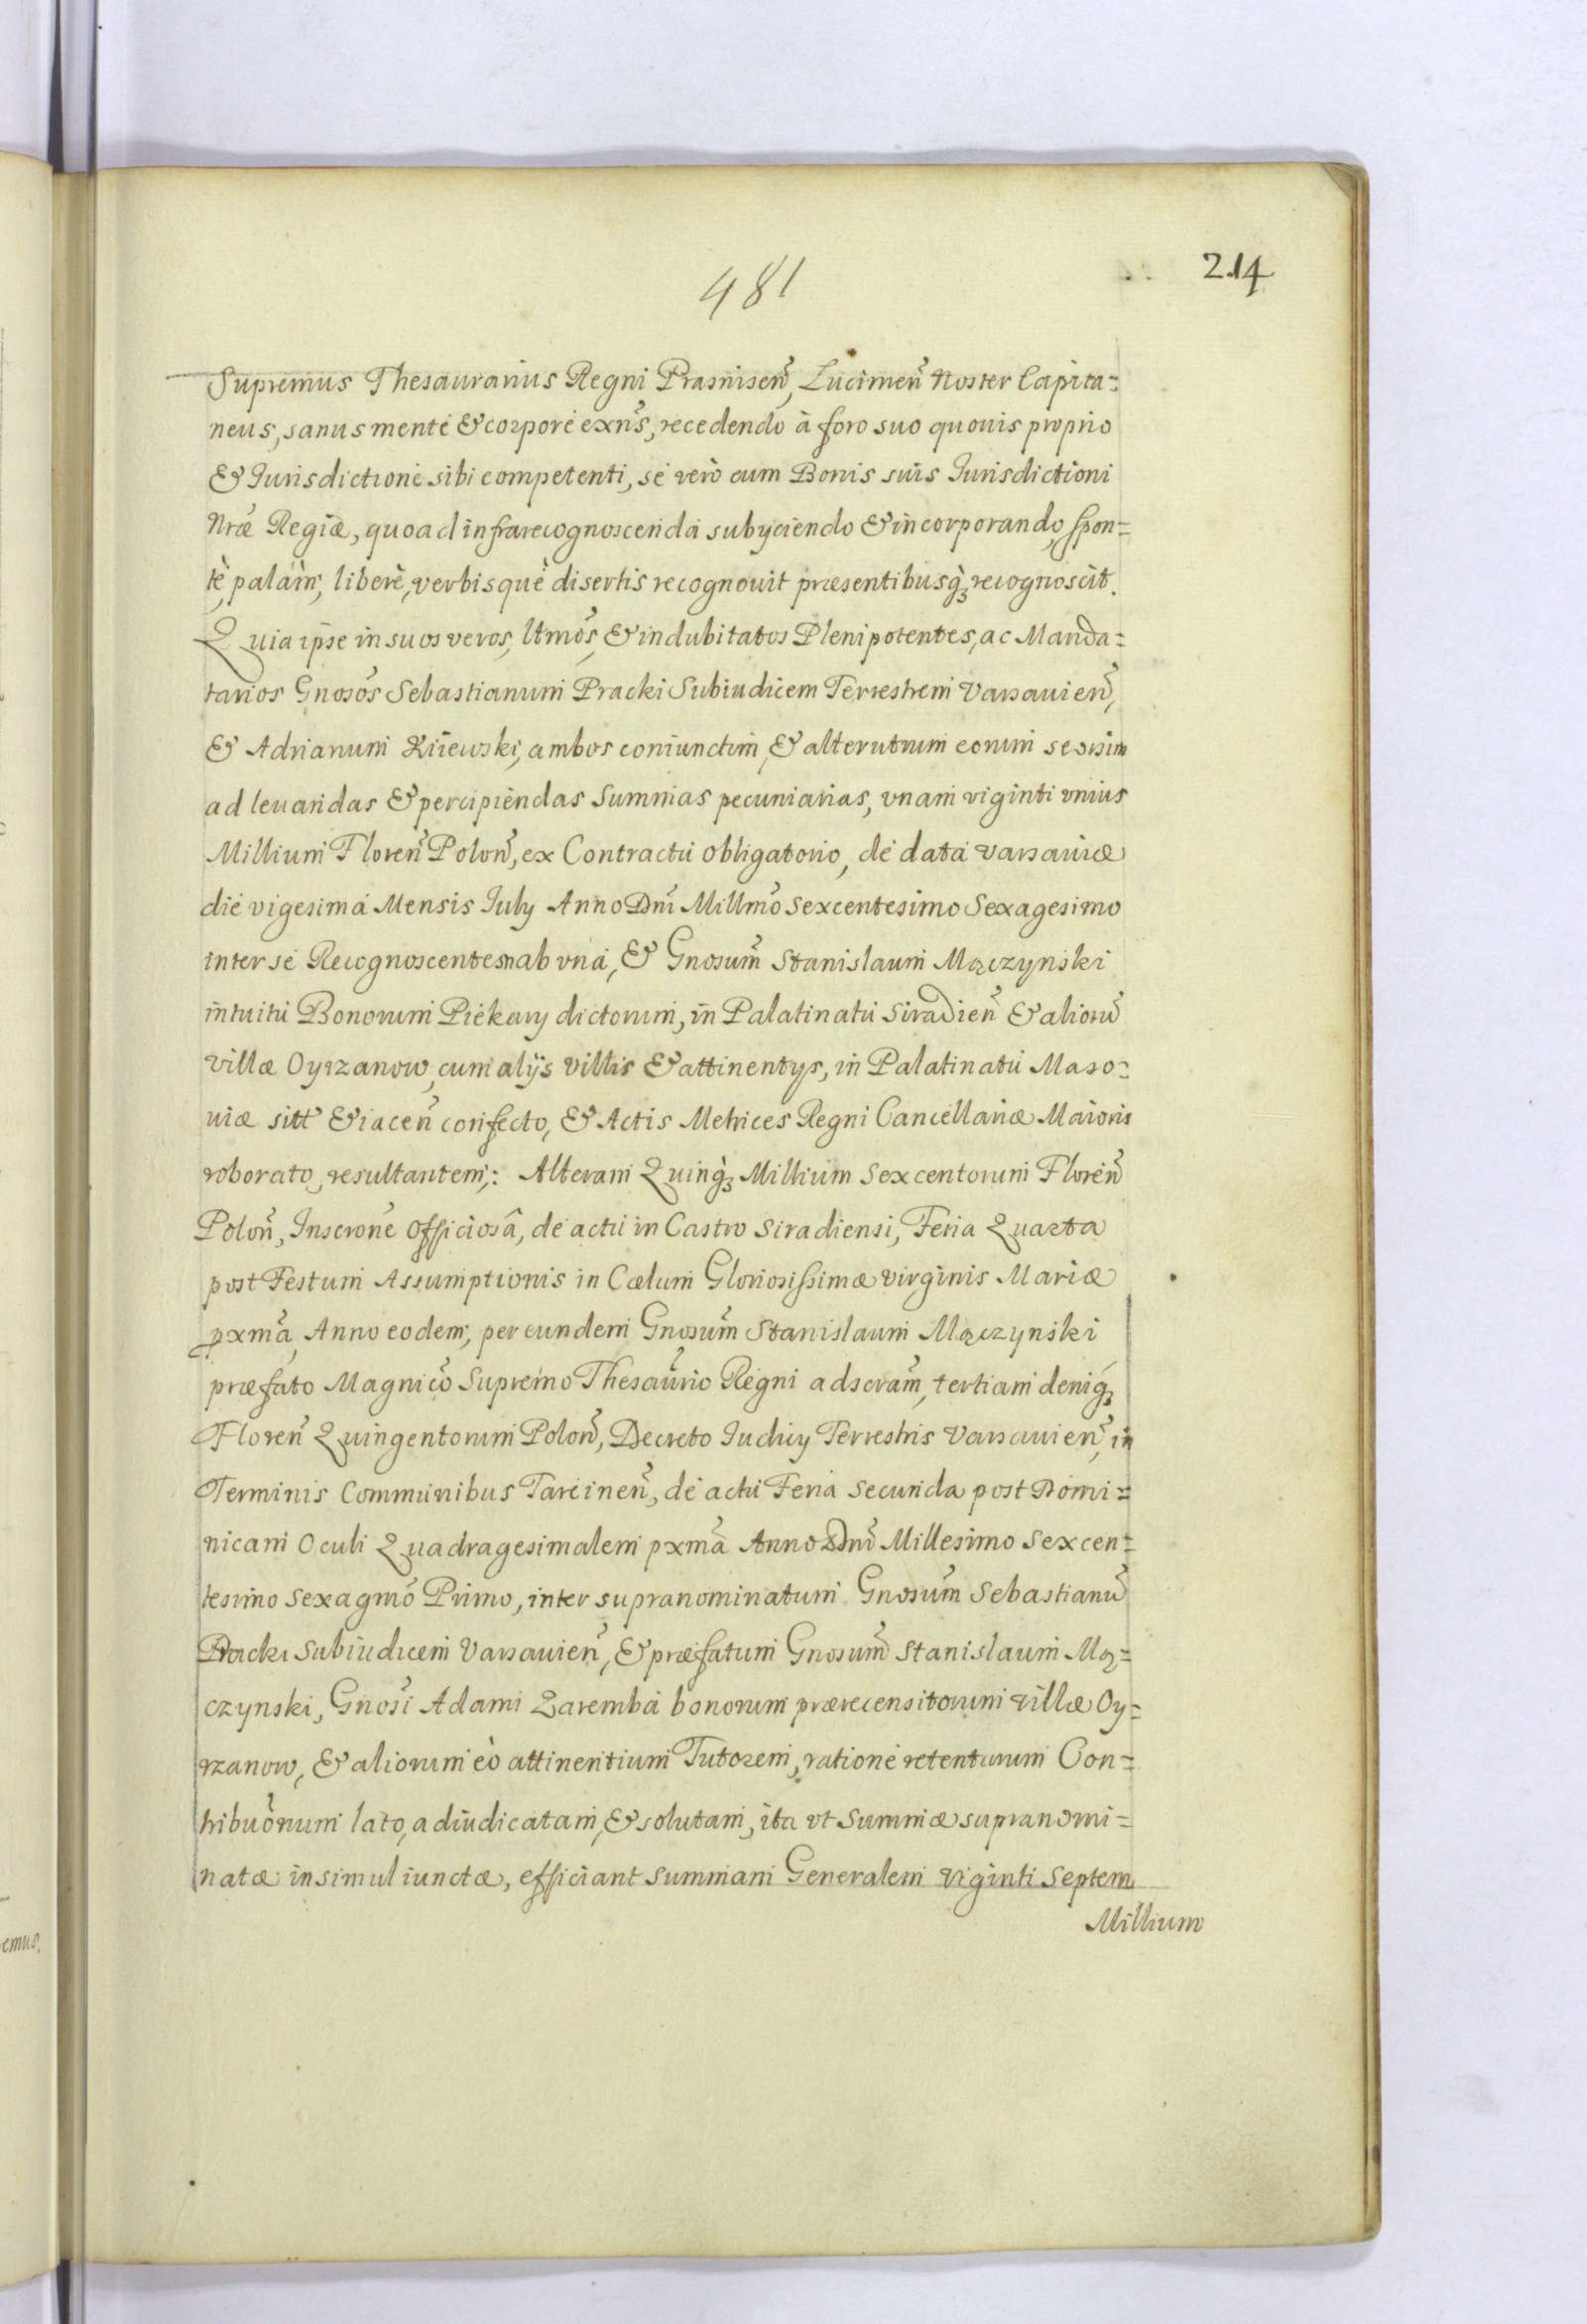 481
214
Supremus Thesaurarius Regni Prasnisen̄, Lucimen̄ Noster Capita=
neus, sanus mente & corpore exn̄s, recedendo à foro suo quouis proprio
& Jurisdictione sibi competenti, se verò cum Bonis suis Jurisdictioni
Nr̄æ Regiæ, quoad infrarecognoscenda subyciendo & incorporando, spon=
tè, palàm, liberè, verbisquè disertis recognouit præsentibusq̀ꝫ recognoscit.
Quia ipse in suos veros, ltmōs, & indubitatos Plenipotentes, ac Manda=
tarios Gnosōs Sebastianum Pracki Subiudicem Terrestrem Varsauien̄,
& Adrianum Kiiewski, ambos coniunctim, & alterutrum eorum seorsim
ad leuandas & percipiendas Summas pecuniarias, vnam viginti vnius
Millium Floren̄ Polon̄, ex Contractu obligatorio, de data Varsauiæ
die vigesima Mensis July Anno Dn̄i Millmō Sexcentesimo Sexagesimo
inter se Recognoscentem ab vna, & Gnosum̄ Stanislaum Mączynski
intuitu Bonorum Piekary dictorum, in Palatinatu Siradien̄ & aliorū
villæ Oyrzanow, cum alijs villis & attinentys, in Palatinatu Maso=
uiæ sitt̄ & iacen̄ confecto, & Actis Metrices Regni Cancellariæ Maioris
roborato, resultantem: Alteram Quinq̀ꝫ Millium Sexcentorum Floren̄
Polon̄, Inscrone Officiosâ, de actu in Castro Siradiensi, Feria Quarta
post Festum Assumptionis in Cælum Gloriosissimæ virginis Mariæ
pxmā, Anno eodem, per eundem Gnosum̄ Stanislaum Mączynski
præfato Magnicō Supremo Thesaurio Regni adscram̄, tertiam deniq́ꝫ
Floren̄ Quingentorum Polon̄, Decreto Iudicy Terrestris Varsauien̄, in
Terminis Communibus Tarcinen̄, de actu Feria secunda post Domi=
nicam Oculi Quadragesimalem pxmā Anno Dn̄i Millesimo Sexcen=
tesimo sexagmō Primo, inter supranominatum Gnosum̄ Sebastianū
Pracki Subiudicem Varsauien̄, & præfatum Gnosum̄ Stanislaum Mą=
czynski, Gnosi Adami Zaremba bonorum prærecensitorum villæ Oy=
rzanow, & aliorum eò attinentium Tutorem, ratione retentarum Con=
tribuōnum lato, adiudicatam, & solutam, ita vt Summæ supranomi=
natæ insimul iunctæ, efficiant Summam Generalem viginti septem
Millium